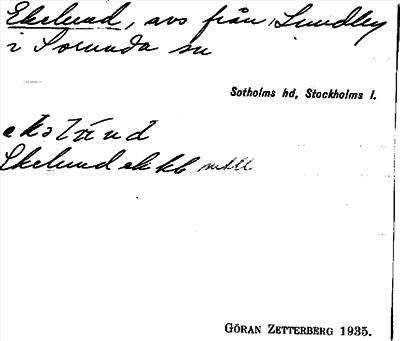 Ekelund, avs från Lundby
i Sorunda sn
Sotholms hd, Stockholms l.
Ekelund ek kb
GÖRAN ZETTERBERG 1935.